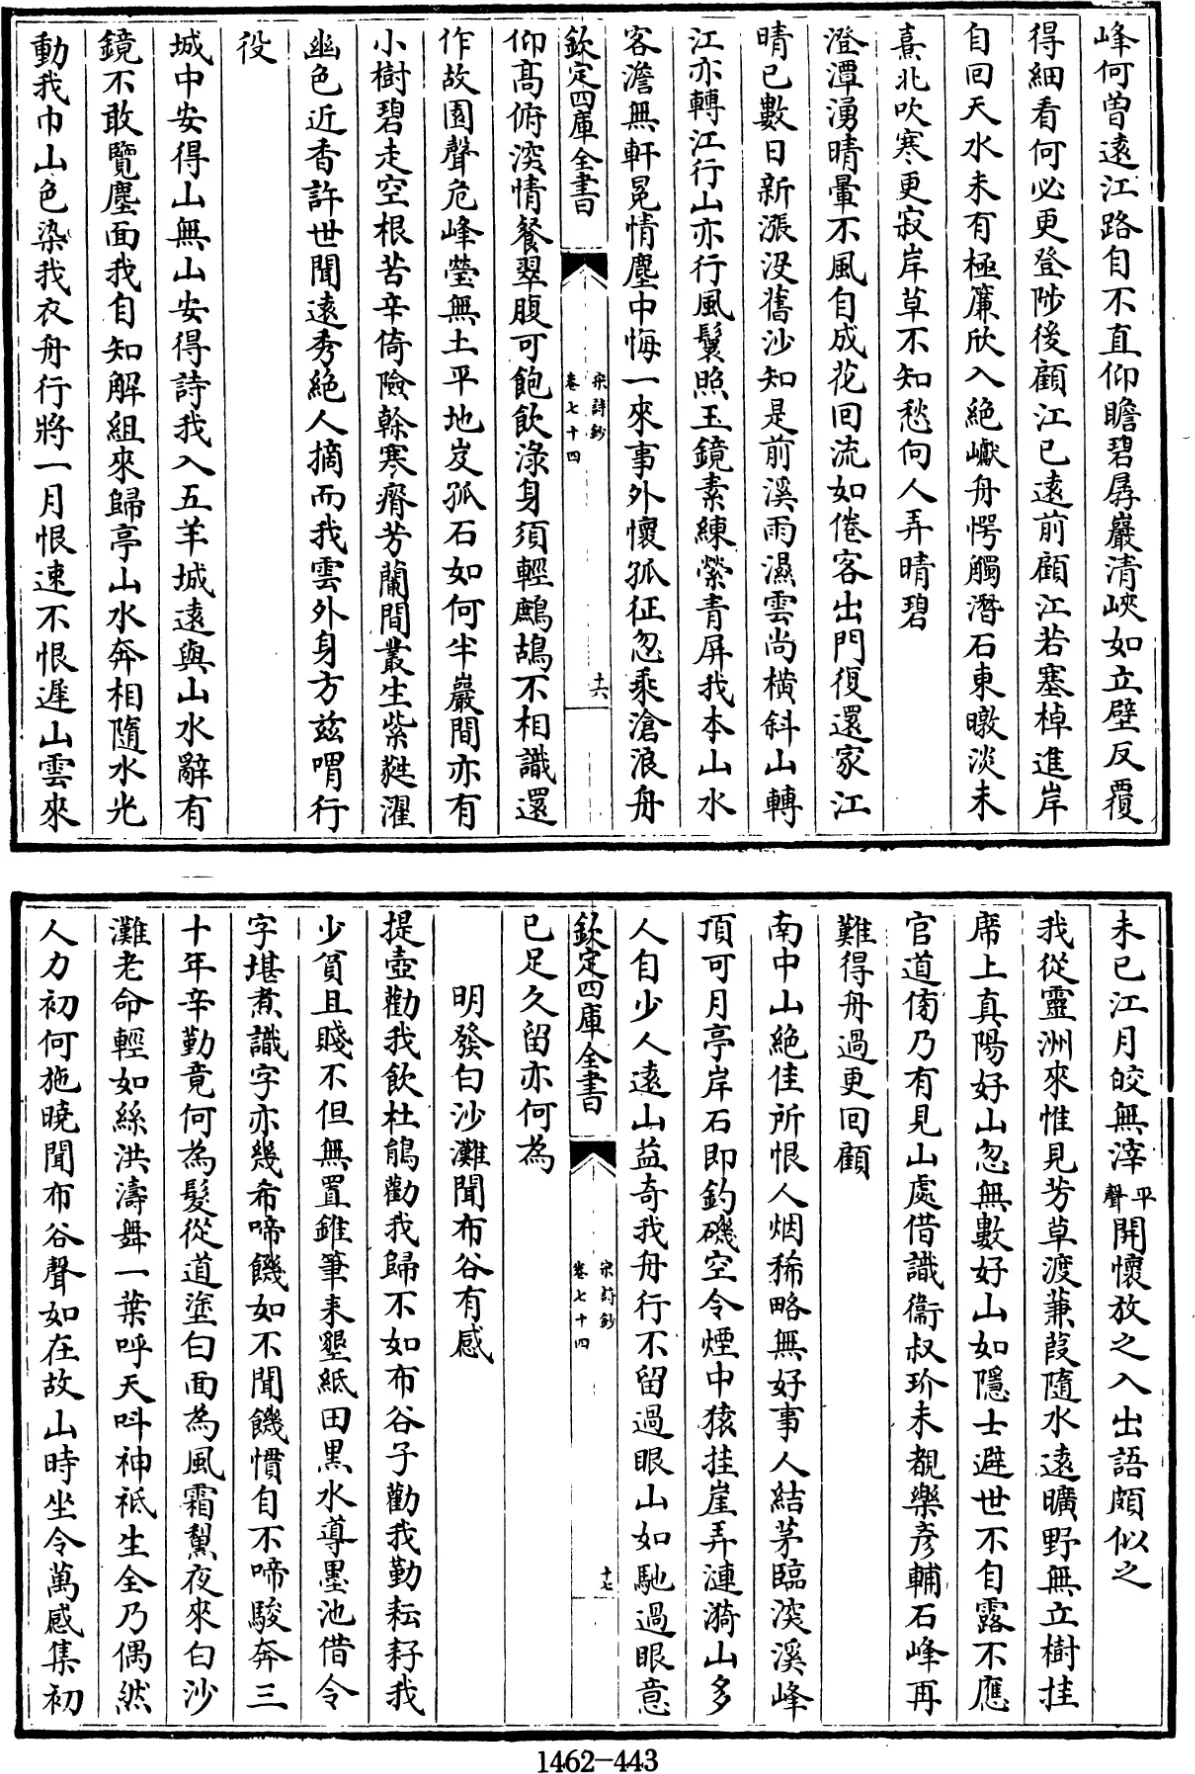 峰何曽遠江路自不直仰瞻碧孱巖清峽如立壁反覆
得細看何必更登陟後顧江已遠前顧江若塞棹進岸
自回天水未有極簾欣入絶巘舟愕觸潛石東暾淡未
熹北吹寒更寂岸草不知愁向人弄晴碧
澄潭湧晴暈不風自成花回流如倦客出門復還家江
晴已數日新漲没舊沙知是前溪雨濕雲尚横斜山轉
江亦轉江行山亦行風鬟照玉鏡素練縈青屏我本山水
客澹無軒冕情塵中悔一來事外懷孤征忽乘滄浪舟
欽定四庫全書
宋詩鈔
卷七十四
十六
仰高俯深情餐翠腹可飽飲淥身須輕鷓鴣不相識還
作故園聲危峰瑩無土平地岌孤石如何半巖間亦有
小樹碧走空根苦辛倚險榦寒瘠芳蘭間叢生紫㽔濯
幽色近香許世聞遠秀絶人摘而我雲外身方兹喟行
役
城中安得山無山安得詩我入五羊城遠與山水辭有
鏡不敢覽塵面我自知解組來歸亭山水奔相隨水光
動我巾山色染我衣舟行將一月恨速不恨遲山雲來
未已江月皎無滓平聲開懷放之入出語頗似之
我從靈洲來惟見芳草渡蒹葭隨水遠曠野無立樹挂
席上真陽好山忽無數好山如隱士避世不自露不應
官道傍乃有見山處借識衞叔玠未覩樂彦輔石峰再
難得舟過更回顧
南中山絶佳所恨人烟稀略無好事人結茅臨深溪峰
頂可月亭岸石即釣磯空令煙中猿挂崖弄漣漪山多
人自少人遠山益奇我舟行不留過眼山如馳過眼意
欽定四庫全書
宋詩鈔
卷七十四
十七
已足久留亦何為
明發白沙灘聞布谷有感
提壺勸我飲杜鵑勸我歸不如布谷子勸我勤耘耔我
少貧且賤不但無置錐筆耒墾紙田黒水導墨池借令
字堪煮識字亦幾希啼饑如不聞饑慣自不啼駿奔三
十年辛勤竟何為髪從道塗白面為風霜黧夜來白沙
灘老命輕如絲洪濤舞一葉呼天呌神祗生全乃偶然
人力初何施曉聞布谷聲如在故山時坐令萬感集初
1462-443